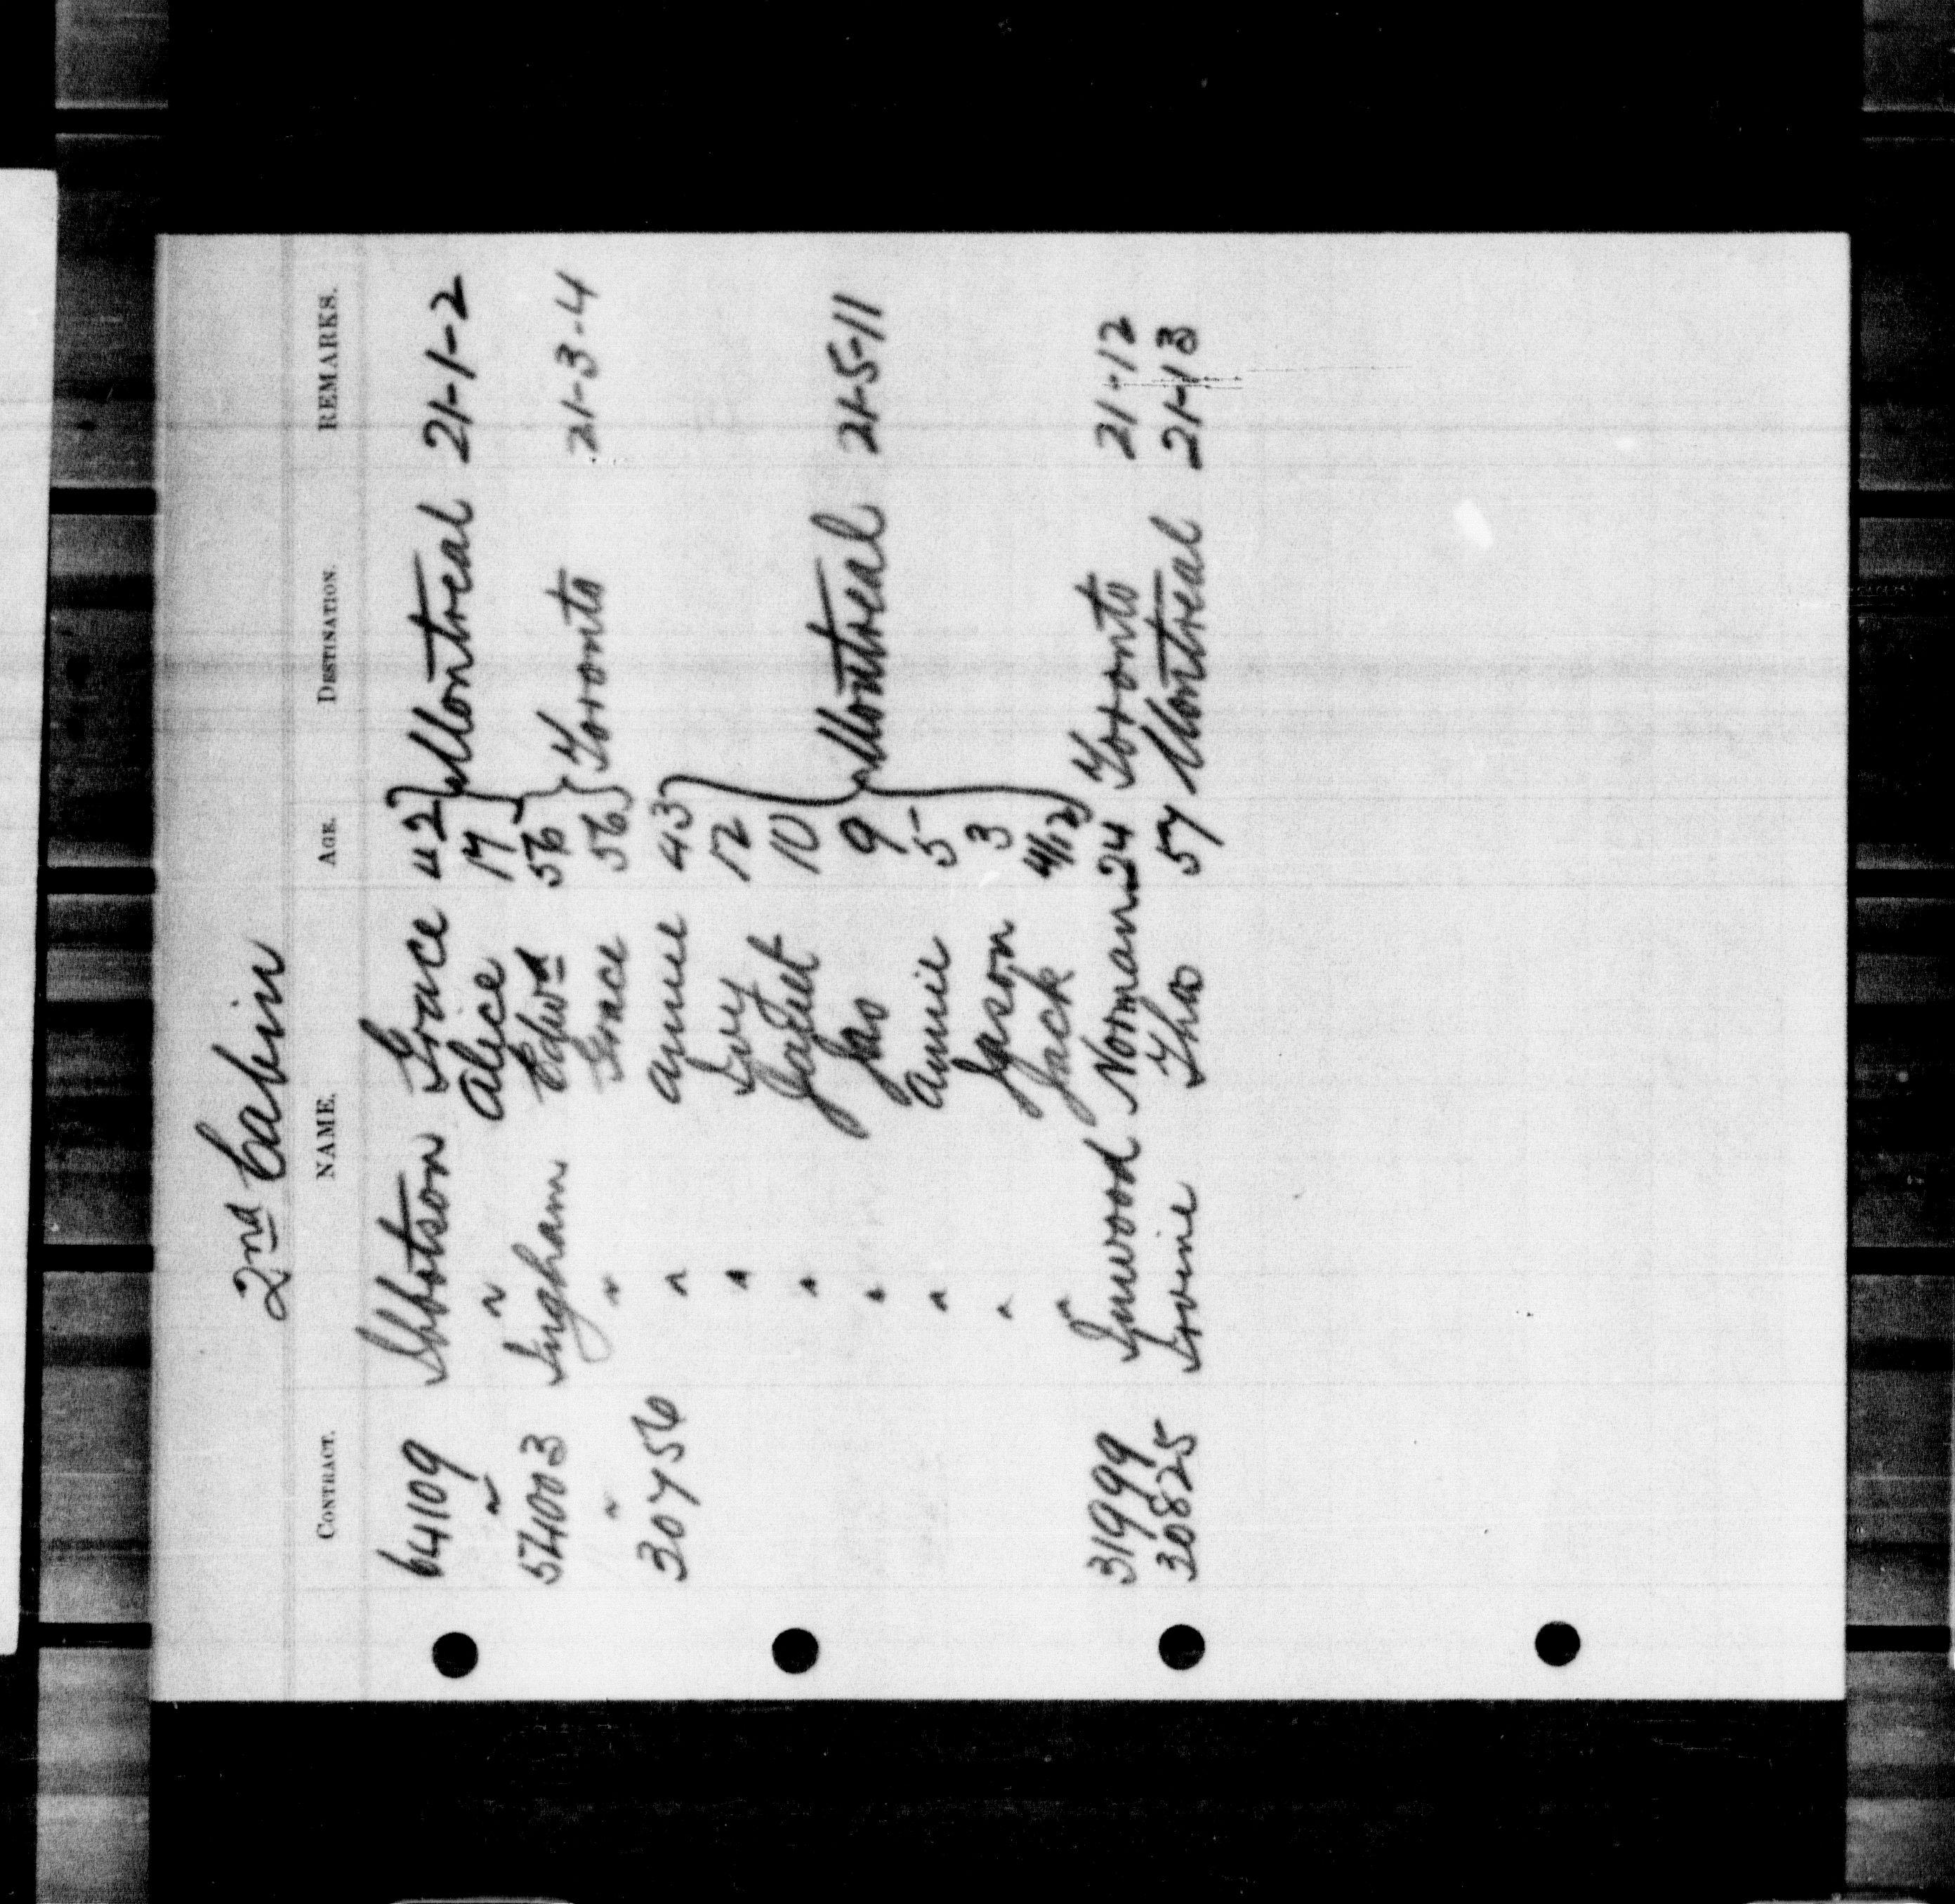 2nd Cabin
CONTRACT. NAME. AGE. DESTINATION. REMARKS.
64109 Ibbotson Grace 42 Montreal 21-1-2
" " Alice 17
574003 Ingham Edwd 56 Toronto 21-3-4
" " Grace 56
30756 " Annie 43
" Ivy 12
" 10
" Jas 9 Montreal 21-5-11
" Annie 5
" 3
" Jack 4/12
31999 Inwood Norman 24 Toronto 21-12
30825 Irvine Thos 57 Montreal 21-13